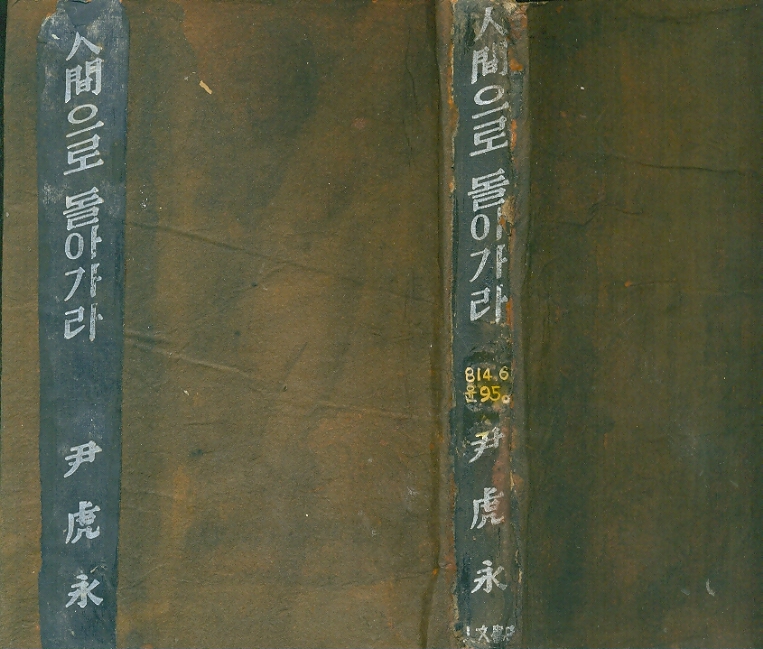 人間으로 돌아가라
尹虎永
人間으로 돌아가라
814.6
윤95ㅇ
尹虎永